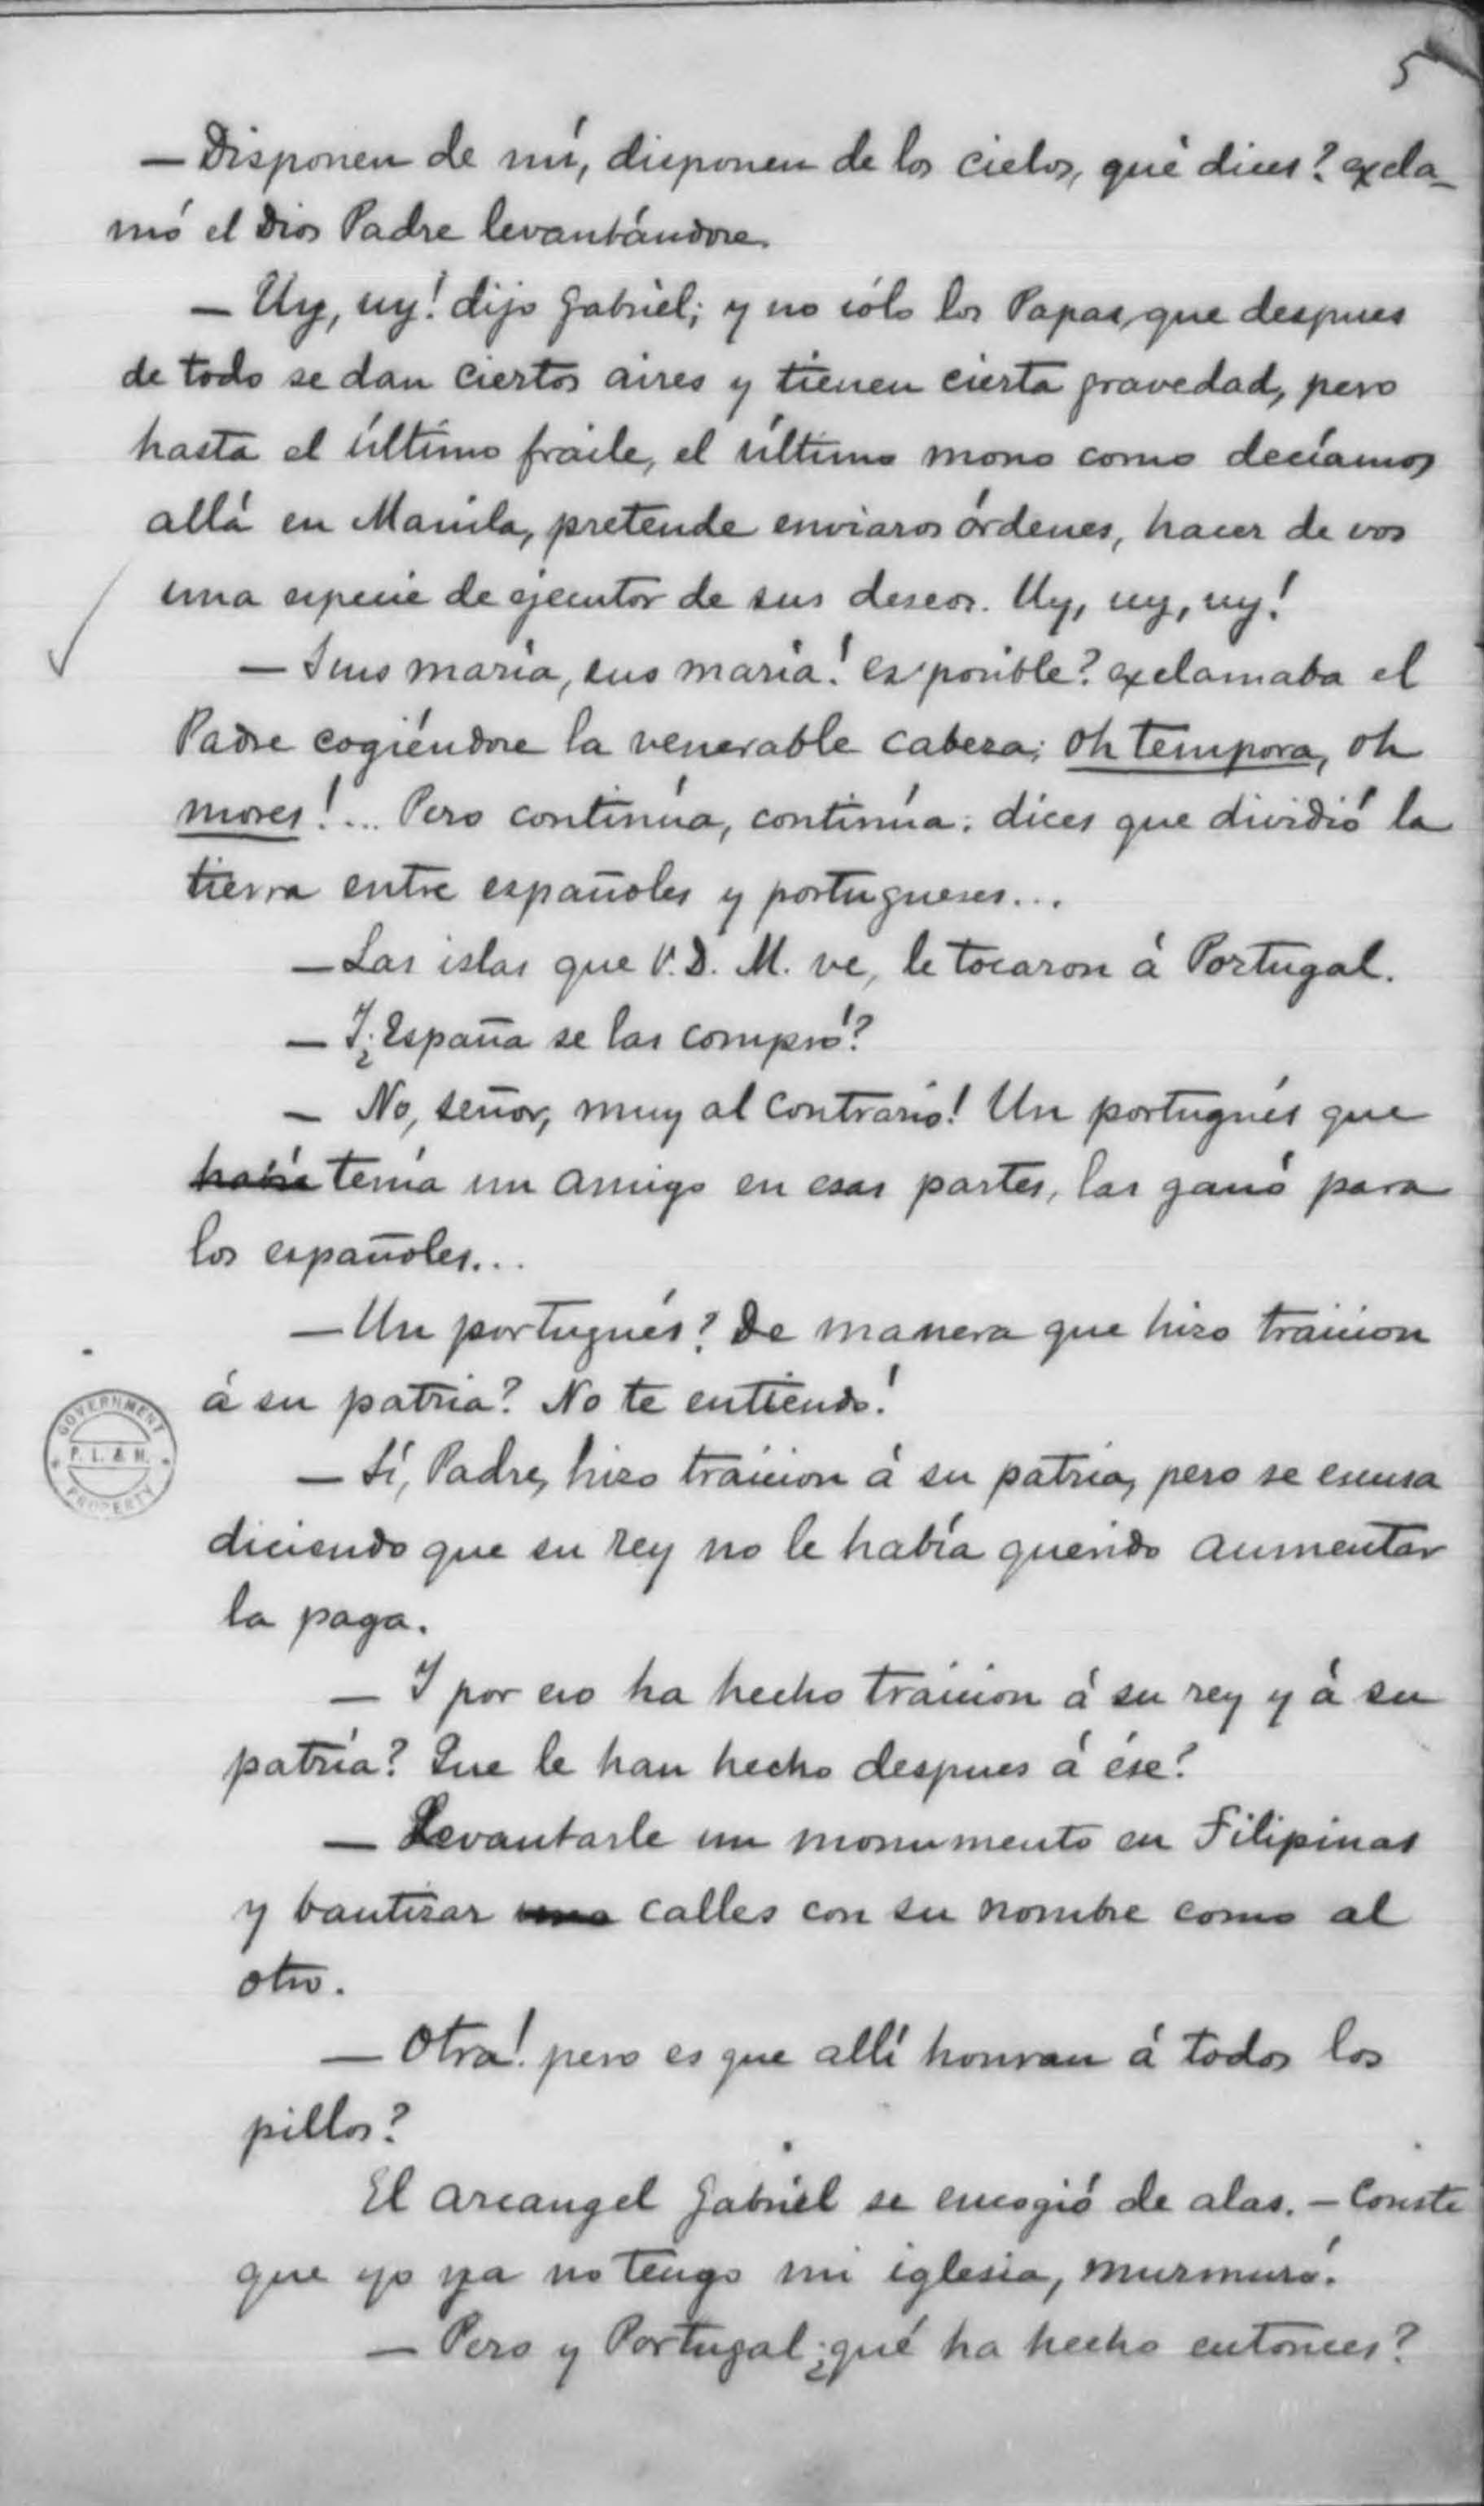 5
— Disponen de mí, disponen de los cielos, qué dices? excla-
mó el Dios Padre levantándose.
— Uy, uy! dijo Gabriel; y no sólo los Papas, que despues
de todo se dan ciertos aires y tienen cierta gravedad, pero
hasta el último fraile, el último mono como decíamos
allá en Manila, pretende enviaros órdenes, hacer de vos
una especie de ejecutor de sus deseos. Uy, uy, uy!
— Sus maría, sus maría! es posible? exclamaba el
Padre cogiéndose la venerable cabeza; oh tempora, oh
mores!... Pero continúa, continúa: dices que dividió la
tierra entre españoles y portugueses...
— Las islas que V. D. M. ve, le tocaron á Portugal.
— I ¿España se las compró?
— No, señor, muy al contrario! Un portugués que
había tenía un amigo en esas partes, las ganó para
los españoles...
— Un portugués? De manera que hizo traicion
á su patria? No te entiendo!
— Sí, Padre, hizo traicion á su patria, pero se escusa
diciendo que su rey no le había querido aumentar
la paga.
— I por eso ha hecho traicion á su rey y á su
patria? Que le han hecho despues á ése?
— Levantarle un monumento en Filipinas
y bautizar una calles con su nombre como al
otro.
— Otra! pero es que allí honran á todos los
pillos?
El arcangel Gabriel se encogió de alas. — Conste
que yo ya no tengo mi iglesia, murmuró.
— Pero y Portugal ¿qué ha hecho entonces?
GOVERNMENT
P. L. & M.
PROPERTY